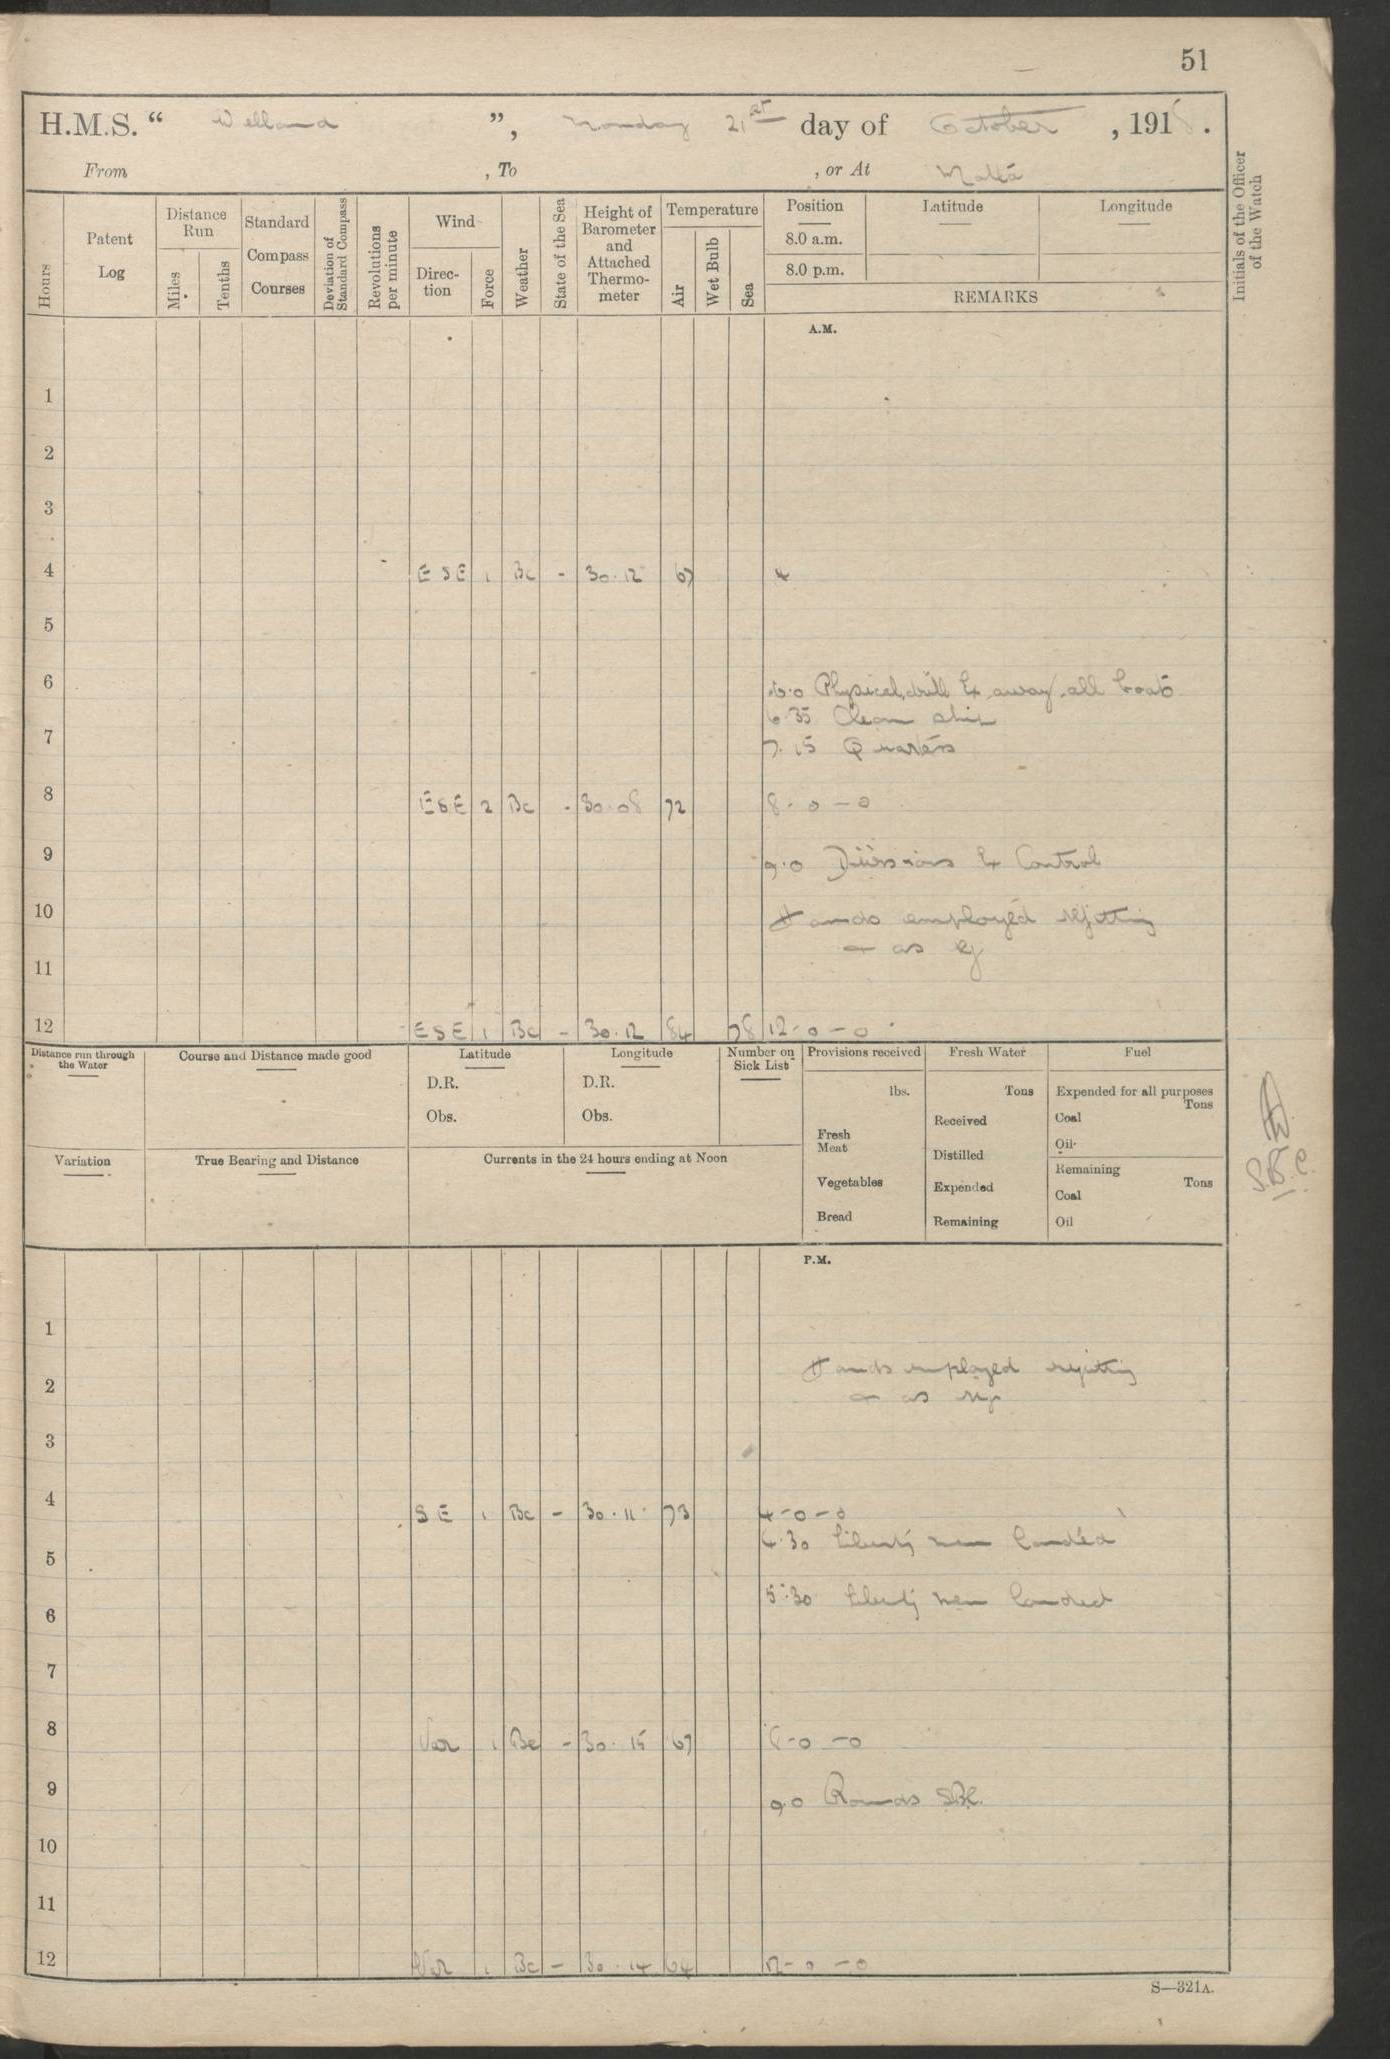 51
H.M.S. “ Welland ”, Monday 21st day of October , 1918 .
From , To , or At Malta
Hours
Patent Log
Distance Run
Miles
Tenths
Standard Compass Courses
Deviation of Standard Compass
Revolutions per minute
Wind
Direc-tion
Force
Weather
State of the Sea
Height of Barometer and Attached Thermo-meter
Temperature
Air
Wet Bulb
Sea
Position
8.0 a.m.
8.0 p.m.
Latitude
Longitude
REMARKS
Initials of the Officer of the Watch
A.M.
1
2
3
4 ESE 1 Bc - 30.12 67 4
5
6 6.0 Physical drill Ex away all boats
6.35 Clean ship
7 7.15 Quarters
8 ESE 2 Bc - 30.08 72 8-0-0
9 9.0 Divisions Ex Control
10 Hands employed refitting
& as
11
12 ESE 1 Bc - 30.12 84 78 12-0-0
Distance run through the Water
Course and Distance made good
Latitude
D.R.
Obs.
Longitude
D.R.
Obs.
Number on Sick List
Provisions received
lbs.
Fresh Meat
Vegetables
Bread
Fresh Water
Tons
Received
Distilled
Expended
Remaining
Fuel
Expended for all purposes
Tons
Coal
Oil
Remaining
Tons
Coal
Oil
S.B.C.
Variation
True Bearing and Distance
Currents in the 24 hours ending at Noon
P.M.
1
2 Hands employed refitting
& as req
3
4 SE 1 Bc - 30.11 73 4-0-0
4.30 Liberty men landed
5
5.30 Liberty men landed
6
7
8 Var 1 Bc - 30.15 67 8-0-0
9 9.0 Rounds SBC.
10
11
12 Var 1 Bc - 30.14 64 12-0-0
S—321A.